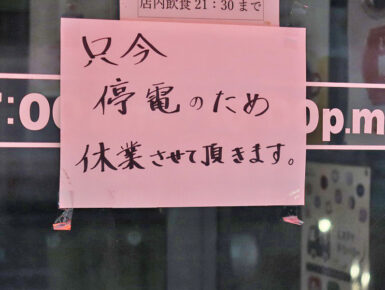 店内飲食21:30まで
只今
停電のため
休業させて頂きます。
:00
0p.m